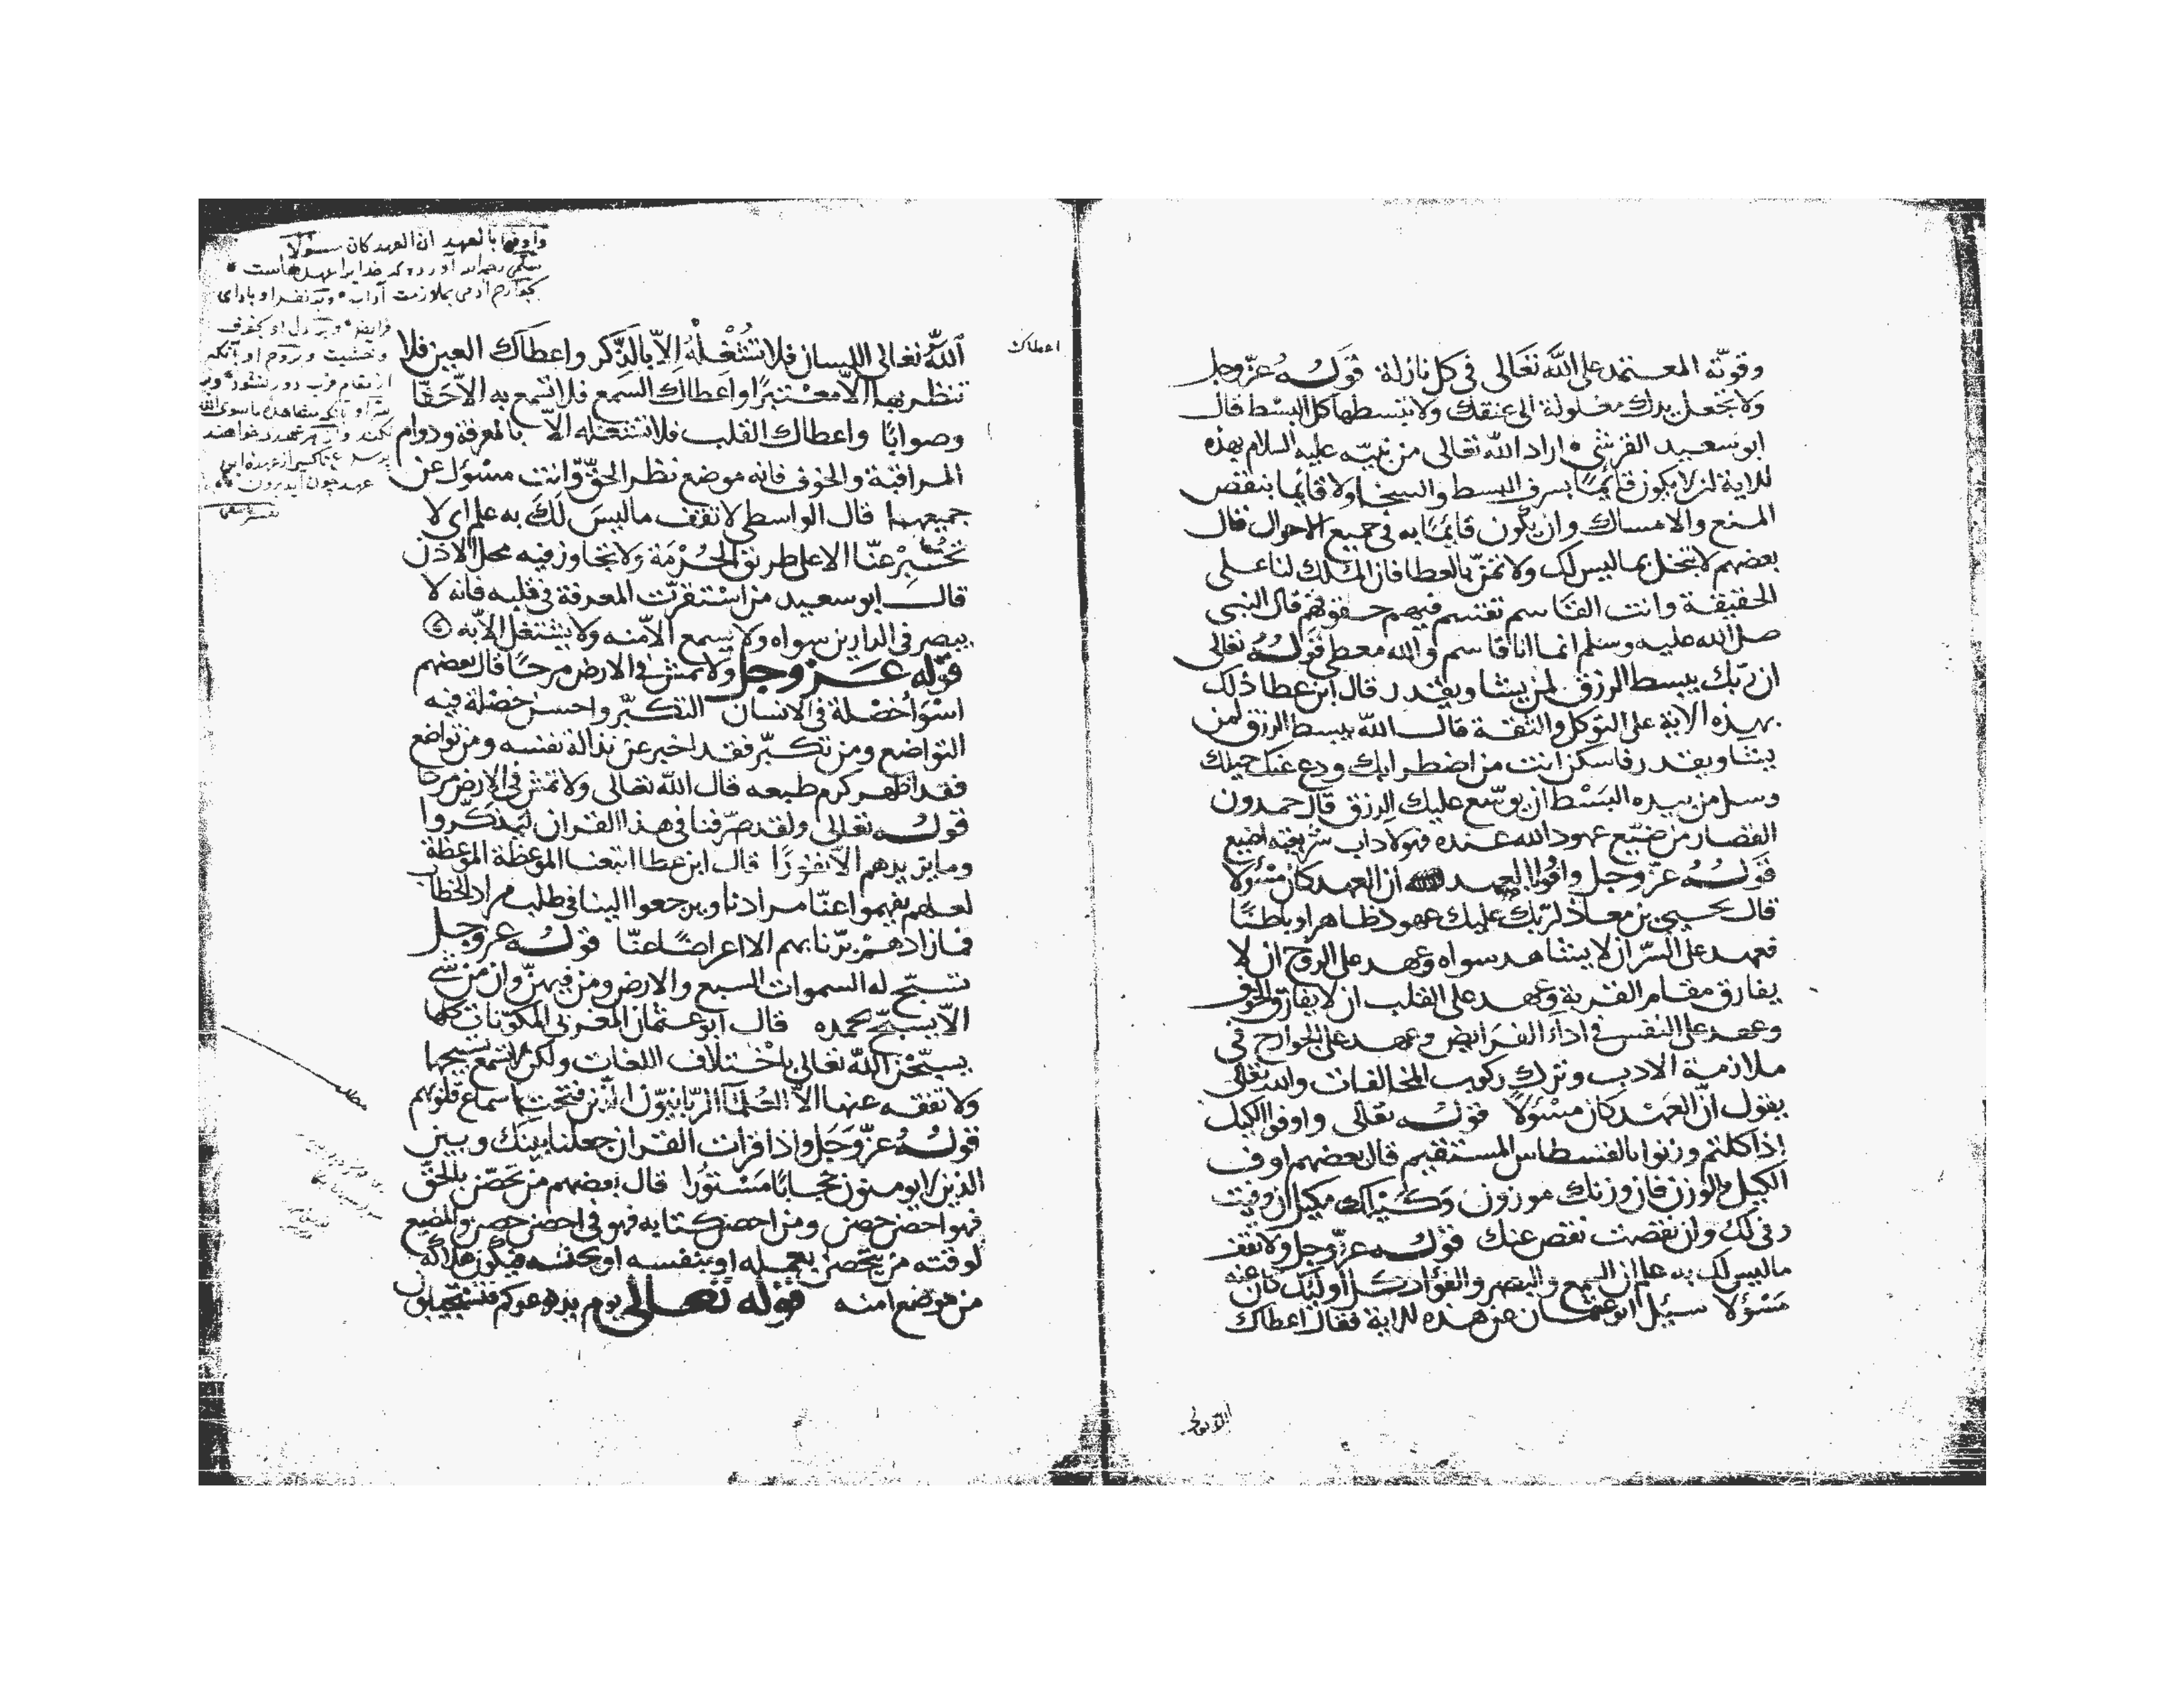 وقوته المعتمد على الله تعالى في كل نازلة قوله عز وجل
ولا تجعل يدك مغلولة الى عنقك ولا تبسطها كل البسط قال
ابو سعيد القرشي اراد الله تعالى من نبيه عليه السلام بهذه
الاية ان لا يكون قائما بسرف البسط والسخا ولا قائما بنقص
المنع والامساك وان يكون قائما به في جميع الاحوال قال
بعضهم لا تبخل بما ليس لك ولا تمنن بالعطا فان الملك لنا على
الحقيقة وانت القاسم تقسم فيهم حقوقهم قال النبي
صلى الله عليه وسلم انما انا قاسم والله معطي قوله تعالى
ان ربك يبسط الرزق لمن يشا ويقدر قال ابن عطا ذلك
بهذه الاية على التوكل والثقة قال الله يبسط الرزق لمن
يشا ويقدر فاسكن انت من اضطرابك ودع عنك حيلك
وسل من بيده البسط ان يوسع عليك الرزق قال حمدون
القصار من ضيع عهود الله عنده فهو لاداب شريعته اضيع
قوله عز وجل واوفوا بالعهد ان العهد كان مسؤلا
قال يحيى بن معاذ لربك عليك عهود ظاهرا وباطنا
فعهد على السر ان لا يشاهد سواه وعهد على الروح ان لا
يفارق مقام القربة وعهد على القلب ان لا يفارق الخوف
وعهد على النفس في اداء الفرايض وعهد على الجوارح في
ملازمة الادب وترك ركوب المخالفات والله تعالى
يقول ان العهد كان مسئولا قوله تعالى واوفوا الكيل
اذا كلتم وزنوا بالقسطاس المستقيم قال بعضهم اوف
الكيل والوزن فان وزنك موزون وكيلك مكيل ان وفيت
وفى لك وان نقصت نقص عنك قوله عز وجل ولا تقف
ما ليس لك به علم ان السمع والبصر والفؤاد كل اولئك كان عنه
مسؤلا سئل ابو عثمان عن هذه الاية فقال اعطاك
اعطاك
الله تعالى اللسان فلا تشغله الا بالذكر واعطاك العين فلا
تنظر بها الا معتبرا واعطاك السمع فلا تسمع به الا حقا
وصوابا واعطاك القلب فلا تشغله الا بالمعرفة ودوام
المراقبة والخوف فانه موضع نظر الحق وانت مسؤل عن
جميعها قال الواسطي لا تقف ما ليس لك به علم اي لا
تخبر عنا الا على طريق الحرمة ولا تجاوز فيه محل الاذن
قال ابو سعيد من استقرت المعرفة في قلبه فانه لا
يبصر في الدارين سواه ولا يسمع الا منه ولا يشتغل الا به
قوله عز وجل ولا تمش في الارض مرحا قال بعضهم
اسوا خصلة في الانسان التكبر واحسن خصلة فيه
التواضع ومن تكبر فقد اخبر عن نذالة نفسه ومن تواضع
فقد اظهر كرم طبعه قال الله تعالى ولا تمش في الارض مرحا
قوله تعالى ولقد صرفنا في هذا القران ليذكروا
وما يزيدهم الا نفورا قال ابن عطا اتبعنا الموعظة الموعظة
لعلهم يفهموا عنا مرادنا ويرجعوا الينا في طلب مراد الخطاب
فما زادهم برنا بهم الا اعراضا عنا قوله عز وجل
تسبح له السموات السبع والارض ومن فيهن وان من شي
الا يسبح بحمده قال ابو عثمان المغربي المكونات كلها
يسبحن الله تعالى باختلاف اللغات ولكن لا يسمع تسبيحها
ولا تفقه عنها الا العلماء الربانيون الذين فتحت اسماع قلوبهم
قوله عز وجل واذا قرات القران جعلنا بينك وبين
الذين لا يومنون حجابا مستورا قال بعضهم من تحصن بالحق
فهو احصن حصن ومن احصن بكتابه فهو في احصن حصن والمضيع
لوقته من تحصن بعمله او بنفسه او بجنسه فيكون هلاكه
من موضع امنه قوله تعالى يوم يدعوكم فتستجيبون
واوفوا بالعهد ان العهد كان مسؤلا